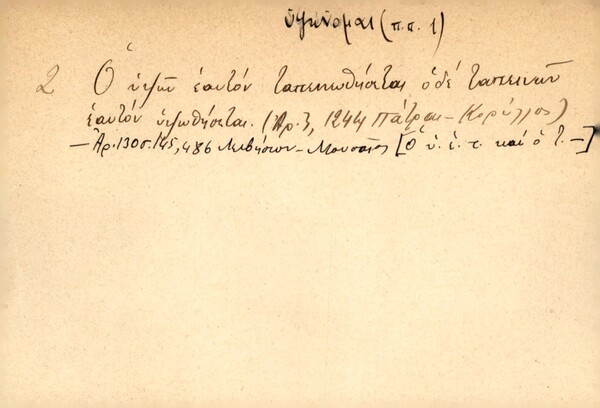 ὑψώνομαι (π.π. 1)
2 Ὁ ὑψῶν ἑαυτόν ταπεινωθήσεται ὁ δέ ταπεινῶν
ἑαυτόν ὑψωθήσεται. (Ἀρ. 3, 1244 Πάτραι - Κορύλλος)
- Ἀρ. 130 σ. 145, 486 Λειβήσιον - Μουσαῖος [Ὁ ὑ. ἑ. τ. καί ὁ τ. -]